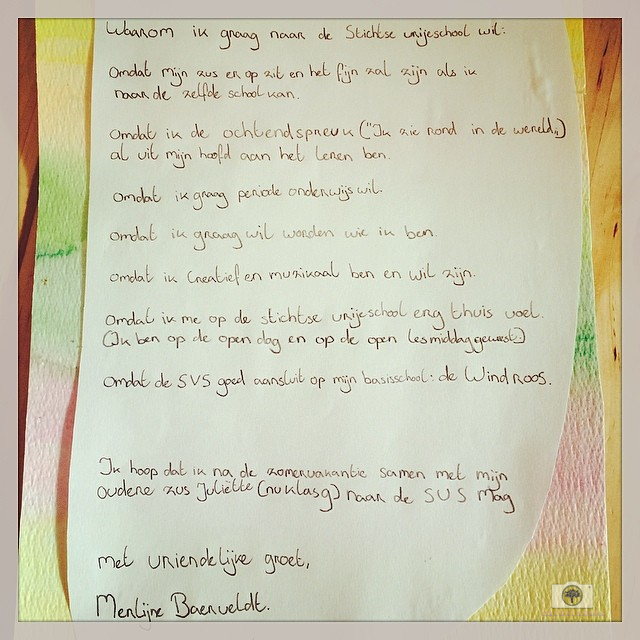 Waarom ik graag naar de Stichtse vrijeschool wil:
Omdat mijn zus er op zit en het fijn zal zijn als ik
naar de zelfde school kan.
Omdat ik de ochtendspreuk ("Ik zie rond in de wereld„)
al uit mijn hoofd aan het leren ben.
Omdat ik graag periode onderwijs wil.
Omdat ik graag wil worden wie ik ben.
Omdat ik Creatief en muzikaal ben en wil zijn.
Omdat ik me op de stichtse vrijeschool erg thuis voel.
(Ik ben op de open dag en op de open lesmiddag geweest.)
Omdat de SVS goed aansluit op mijn basisschool: de Windroos.
Ik hoop dat ik na de zomervakantie samen met mijn
oudere zus Juliëtte (nu klas 9) naar de SVS mag
met vriendelijke groet,
Merlijne Baerveldt.